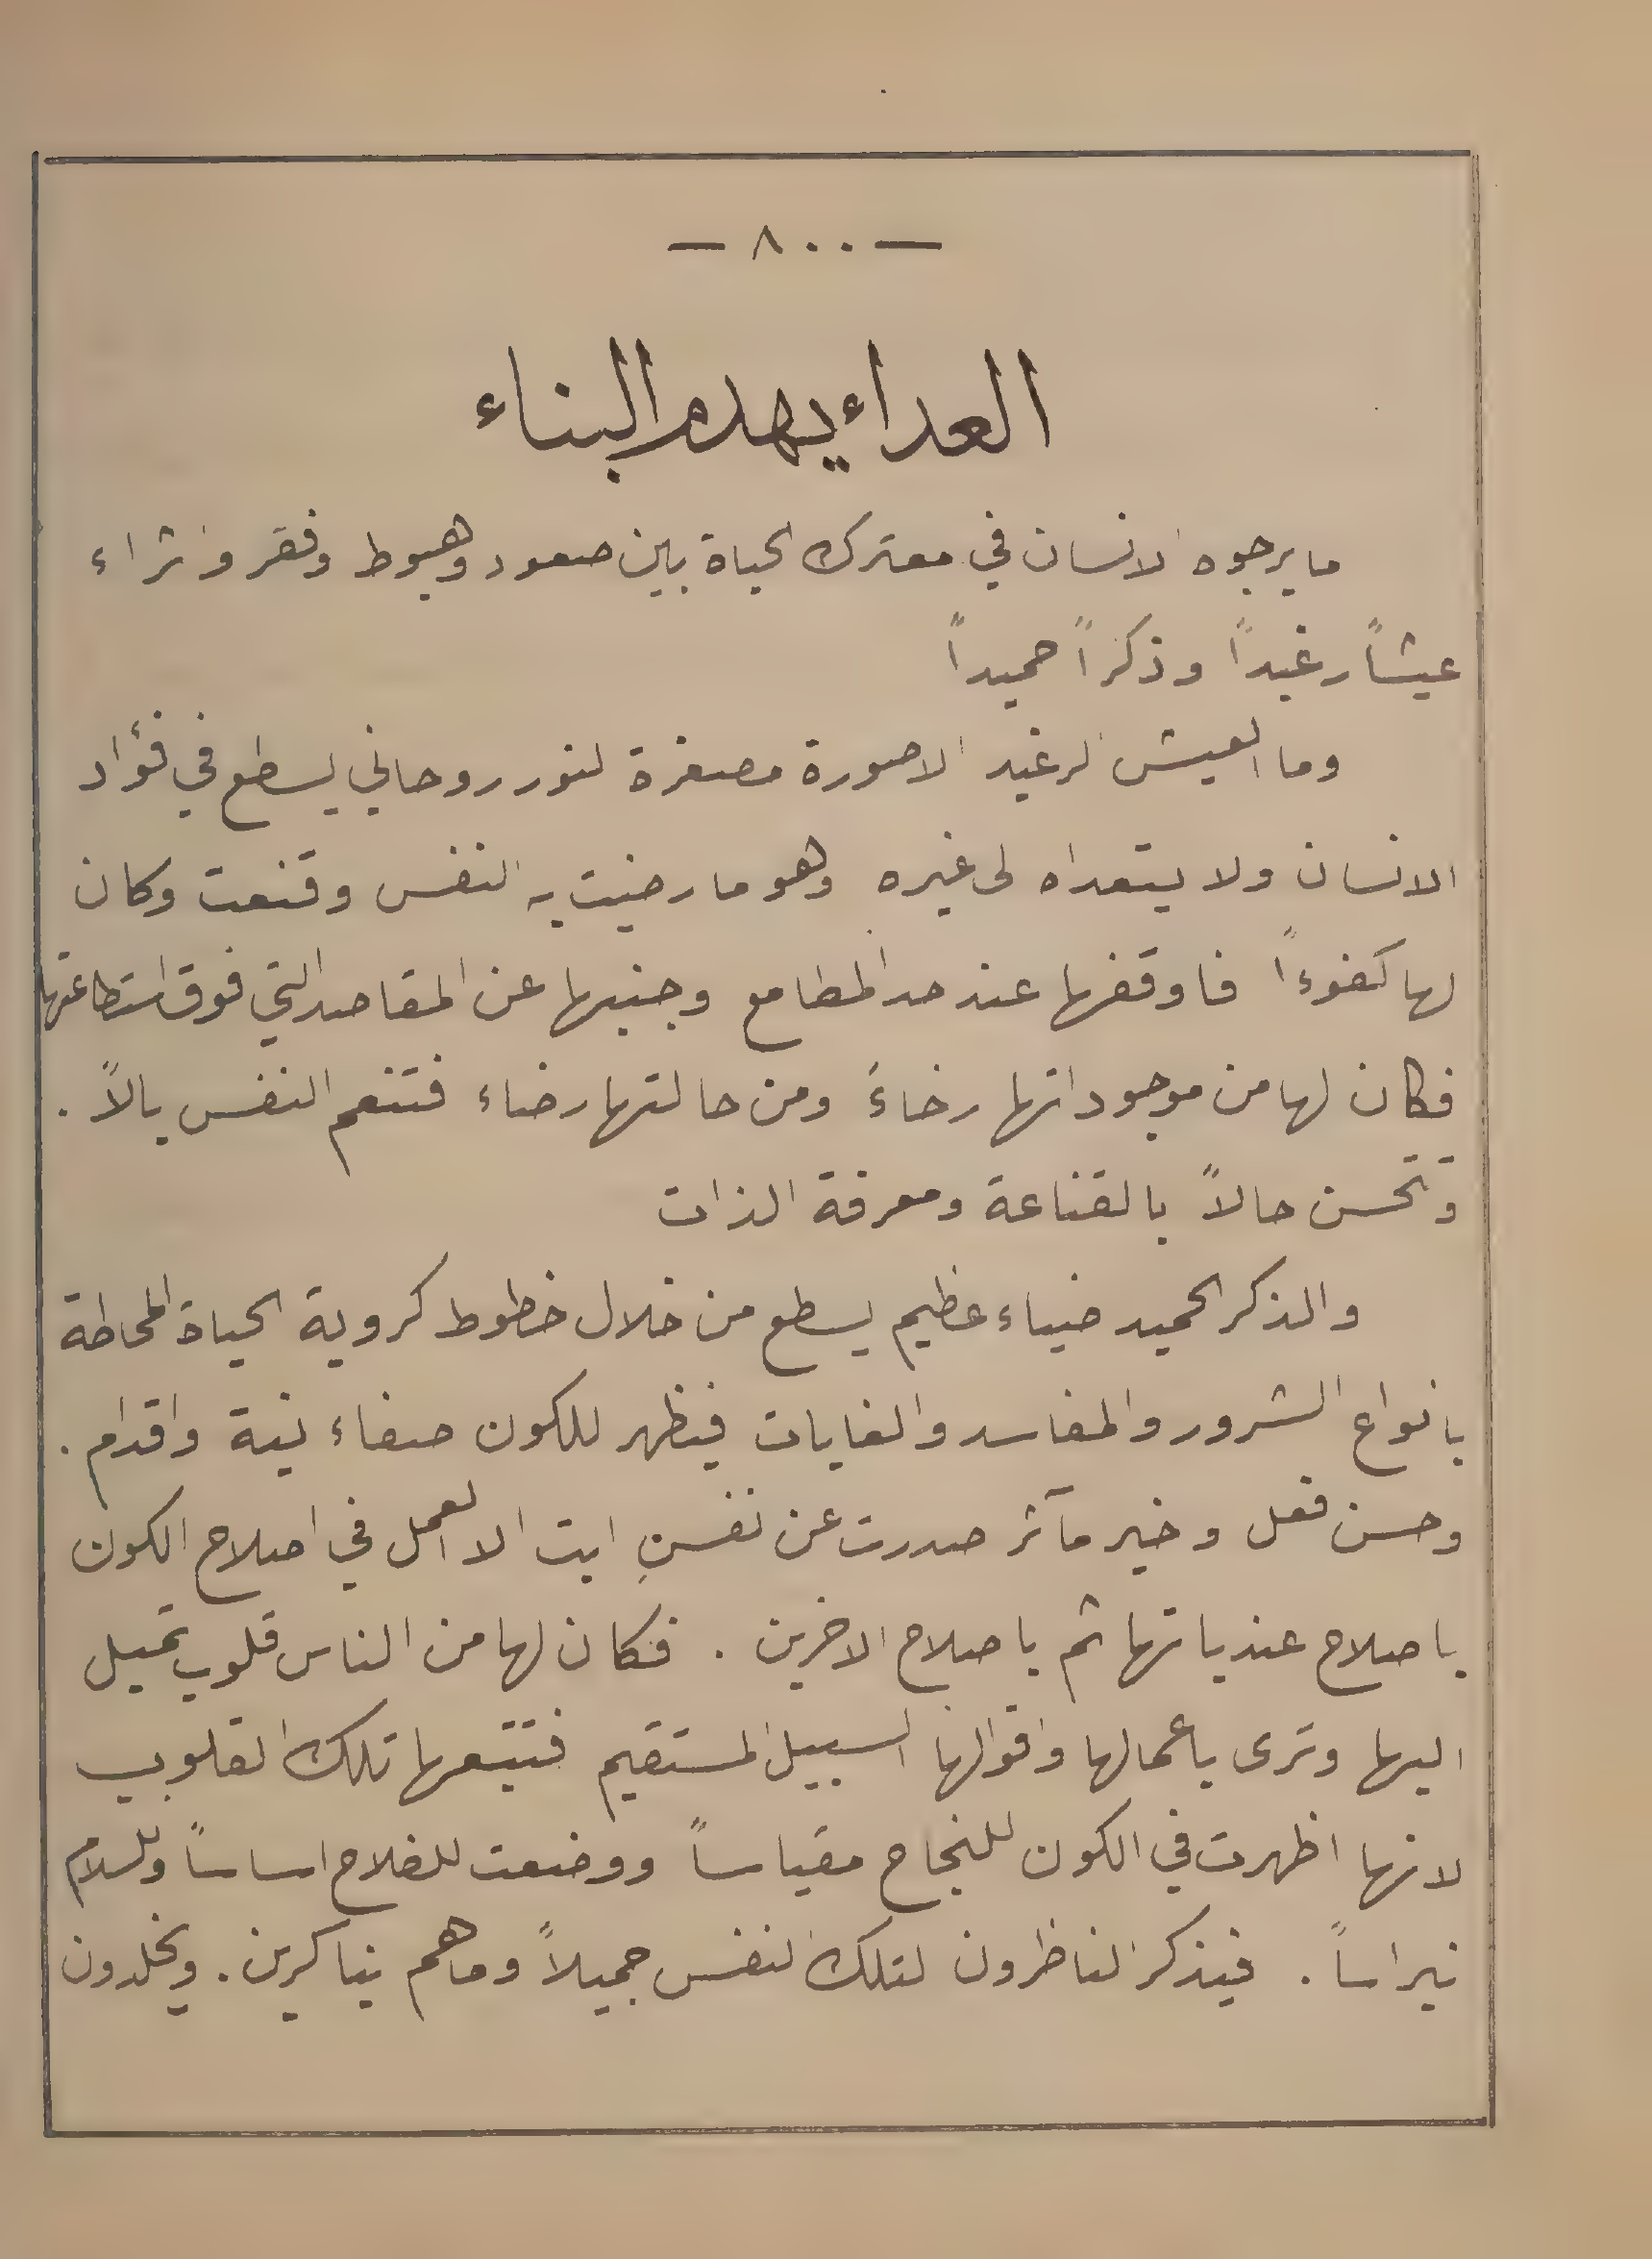 — ٨٠٠ —
العداء يهدم البناء
ما يرجوه الانسان في معترك الحياة بين صعود وهبوط وفقر وثراء
عيشاً رغيداً وذكراً حميداً
وما العيش الرغيد الا صورة مصغرة لنور روحاني يسطع في فؤاد
الانسان ولا يتعداه لى غيره وهو ما رضيت به النفس وقنعت وكان
لها كفوءاً فاوقفها عند حد المطامع وجنبها عن المقاصد التي فوق استطاعتها
فكان لها من موجوداتها رخاءً ومن حالتها رضاء فتنعم النفس بالاً .
وتحسن حالاً بالقناعة ومعرفة الذات
والذكر الحميد ضياء عظيم يسطع من خلال خطوط كروية الحياة المحاطة
بانواع الشرور والمفاسد والغايات فيظهر للكون صفاء نية واقدام .
وحسن فعل وخير مآثر صدرت عن نفسٍ ابت الا العمل في اصلاح الكون
باصلاح عندياتها ثم باصلاح الاخرين . فكان لها من الناس قلوب تميل
اليها وترى باعمالها واقوالها السبيل المستقيم فتتبعها تلك القلوب
لانها اظهرت في الكون للنجاح مقياساً ووضعت للفلاح اساساً وللسلام
نبراساً . فيذكر الناظرون لتلك النفس جميلاً وما هم بناكرين . ويخلدون